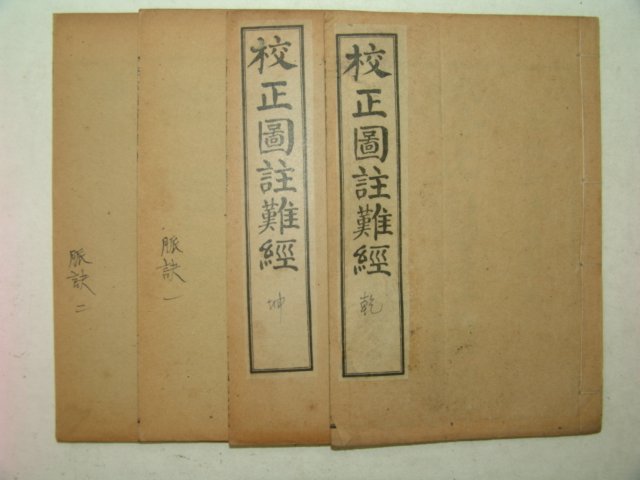 校正圖註難經
乾
校正圖註難經
坤
脈訣一
脈訣二